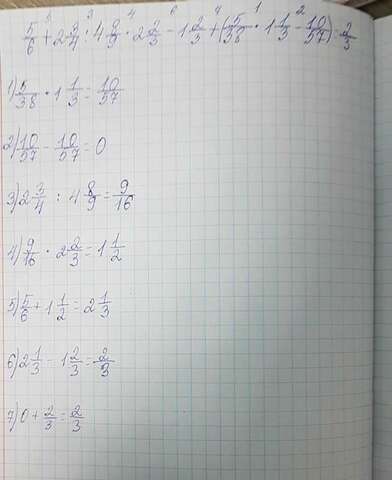 5 3 4 6 7 1 2
5/6 + 2 3/4 : 4 8/9 · 2 2/3 - 1 2/3 + (5/38 · 1 1/3 - 10/57) = 2/3
1) 5/38 · 1 1/3 = 10/57
2) 10/57 - 10/57 = 0
3) 2 3/4 : 4 8/9 = 9/16
4) 9/16 · 2 2/3 = 1 1/2
5) 5/6 + 1 1/2 = 2 1/3
6) 2 1/3 - 1 2/3 = 2/3
7) 0 + 2/3 = 2/3